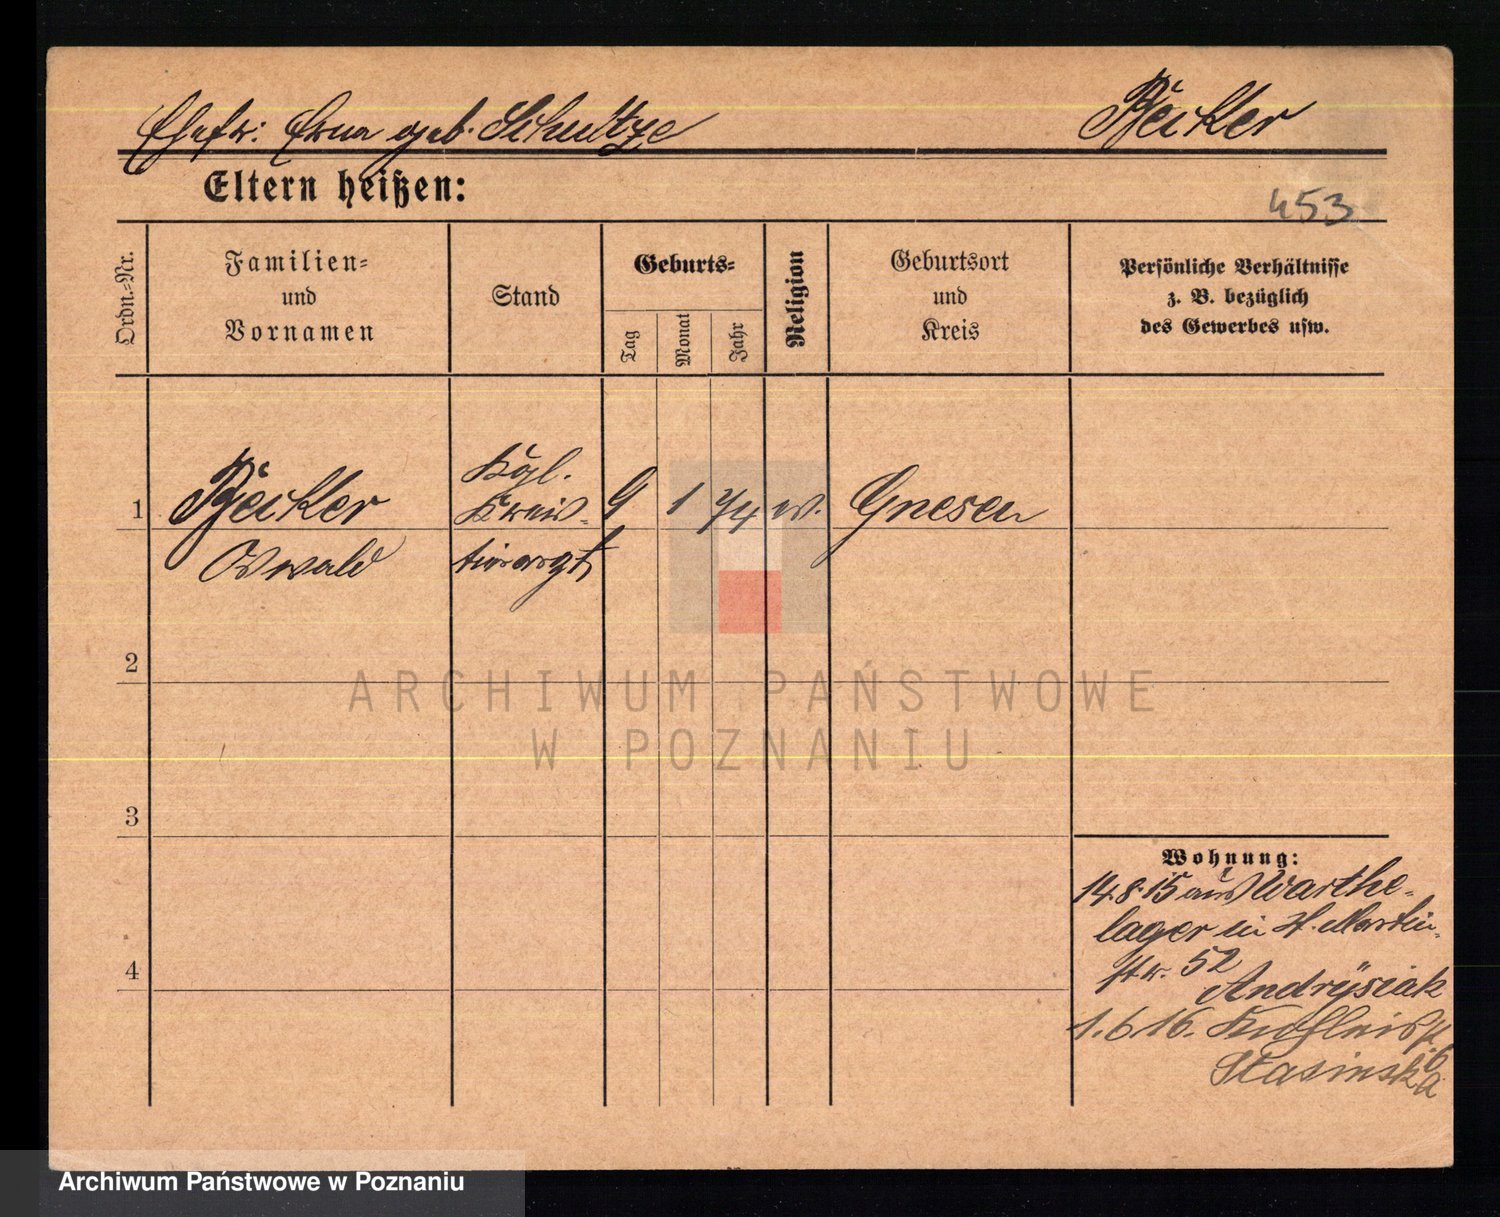 Ehefr: Erna geb. Schultze
Becker
Eltern heißen:
453
Ordn.=Nr.
Familien=
und
Vornamen
Stand
Geburts=
Tag
Monat
Jahr
Religion
Geburtsort
und
Kreis
Persönliche Verhältnisse
z. B. bezüglich
des Gewerbes usw.
1
Becker
Oswald
Kgl.
Kreis=
tierarzt
9
1
74
ev.
Gnesen
2
3
4
Wohnung:
14.8.15 aus Warthe=
lager in St. Martin=
str. 52
Andrysiak
1. 6. 16.
Stasinska
ARCHIWUM PAŃSTWOWE
W POZNANIU
Archiwum Państwowe w Poznaniu